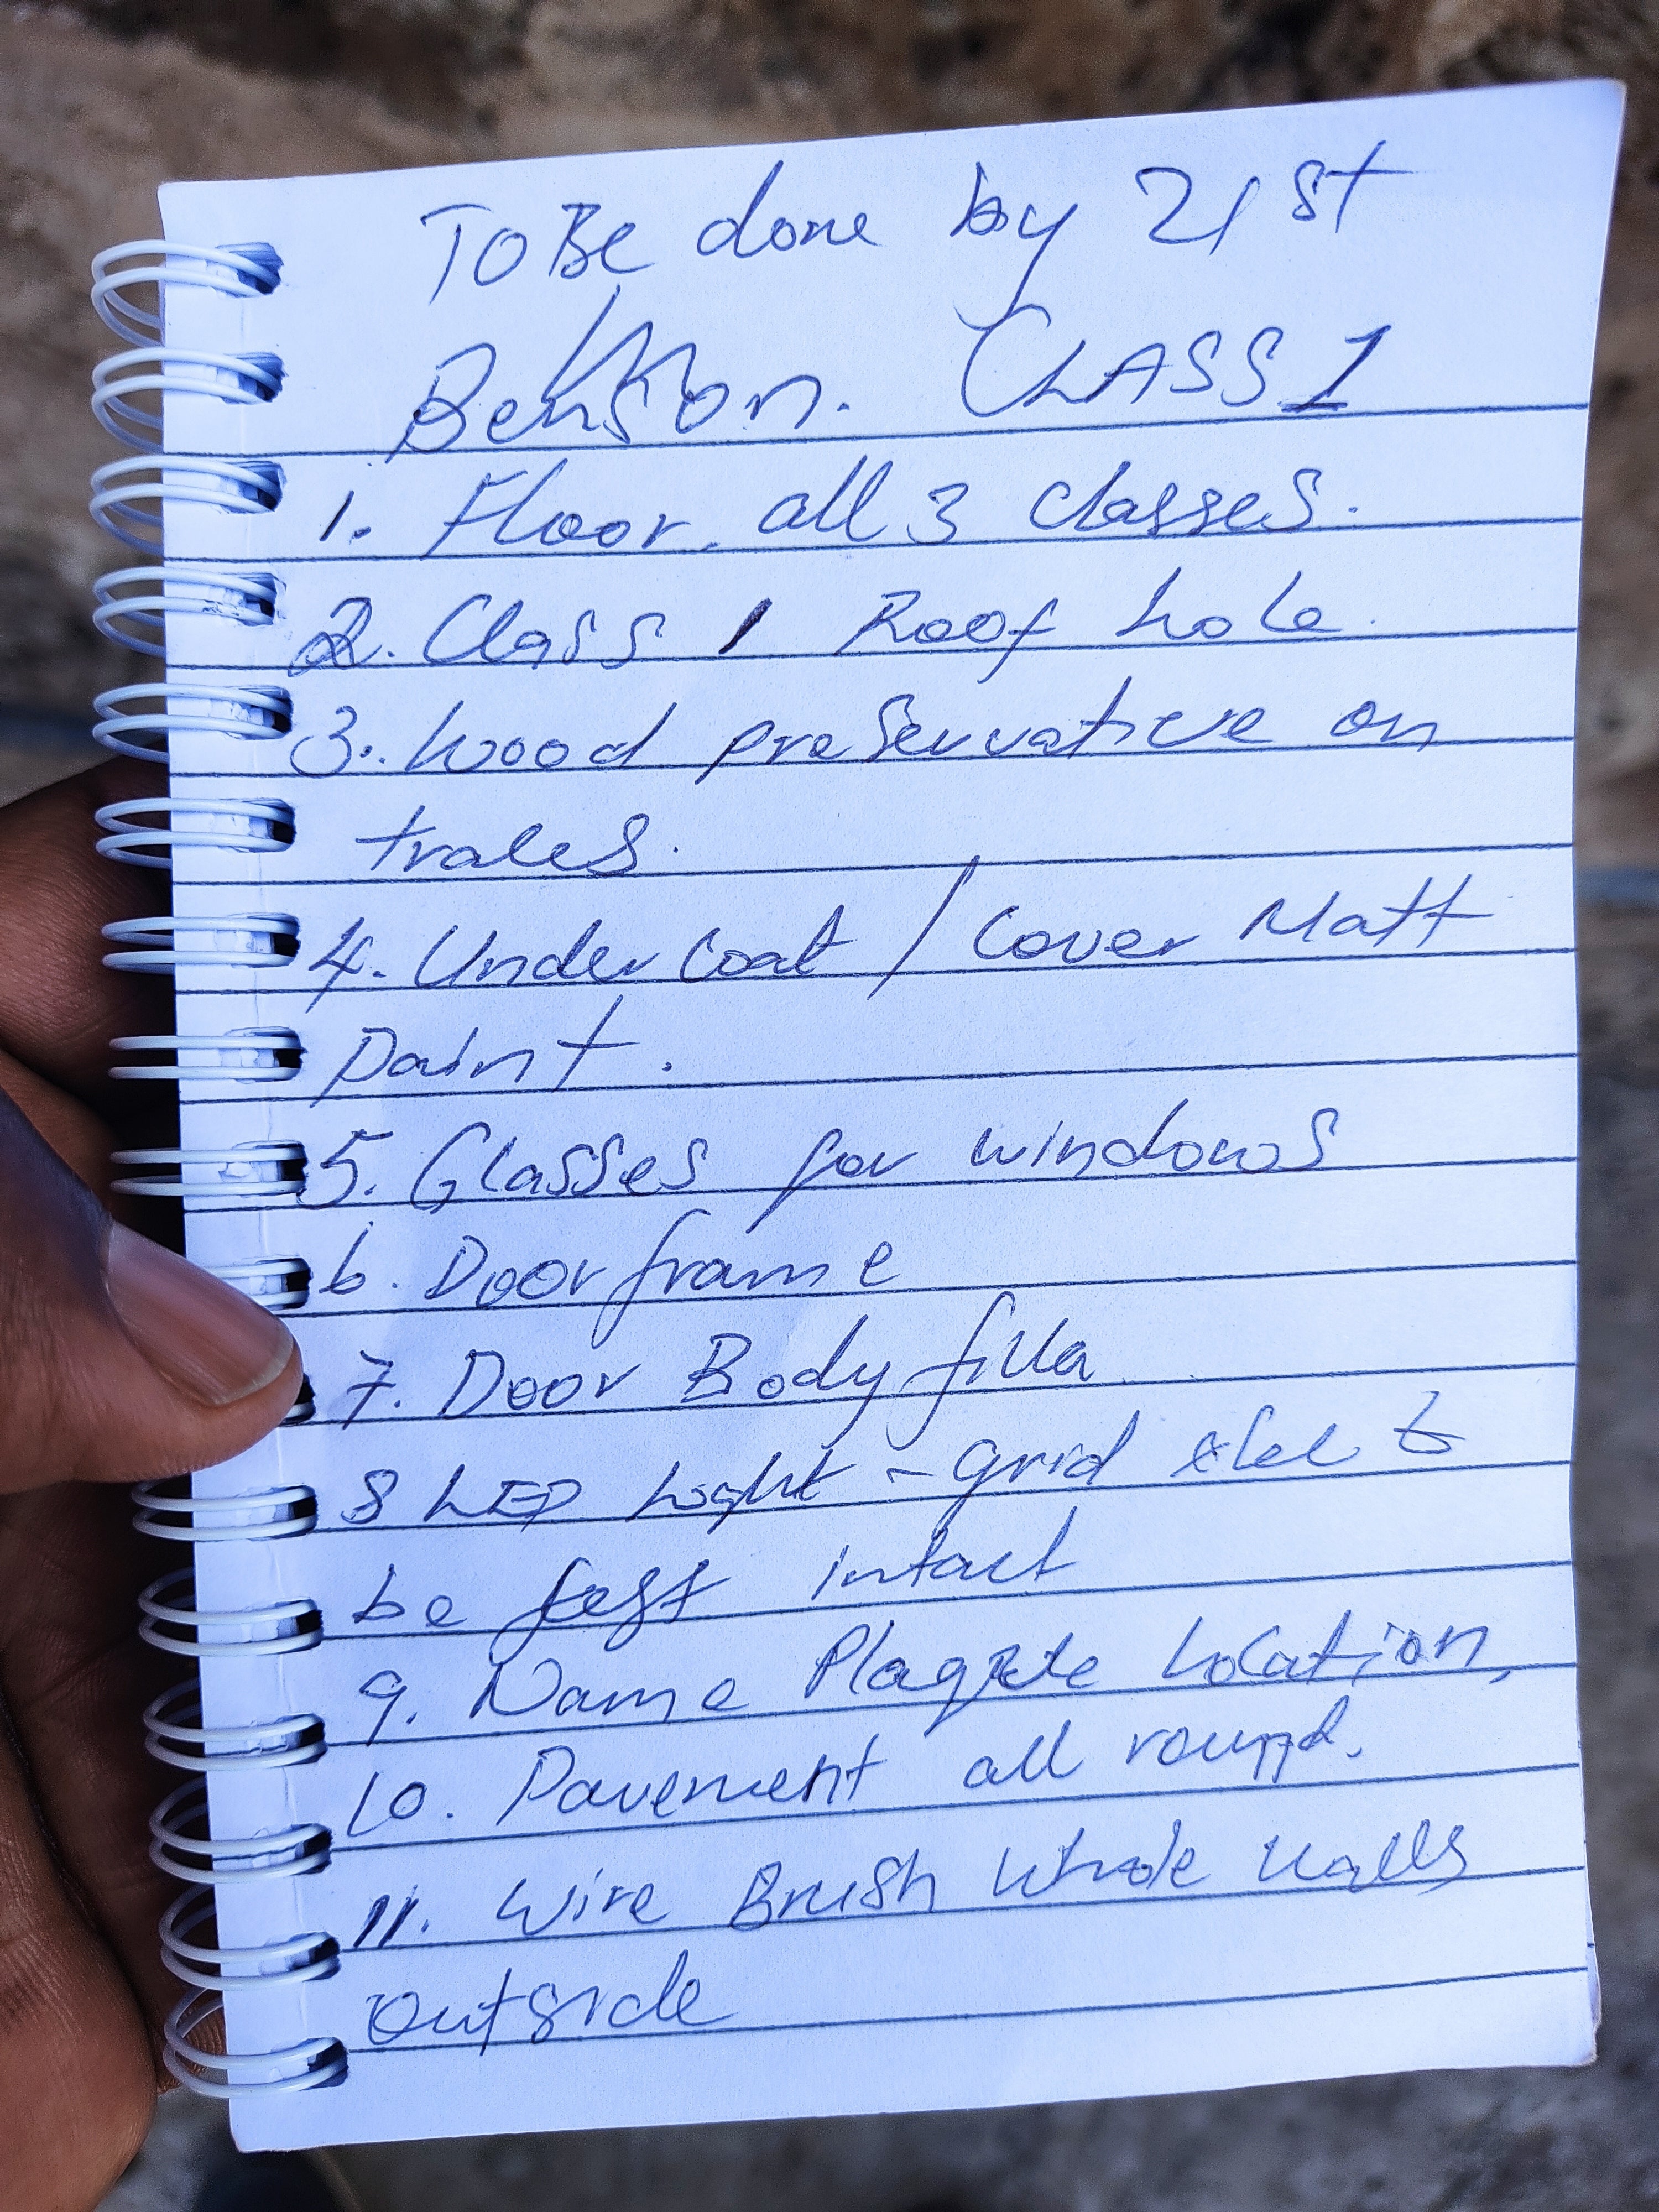 To Be done by 21st
Benson. CLASS 1
1. Floor. all 3 classes.
2. Class 1 Roof hole.
3. Wood preservative on
trales.
4. Under coat / Cover Matt
paint.
5. Glasses for windows
6. Door frame
7. Door Body filla
8 LED Light - grid
be left intact
9. Name Plaque Location,
10. Pavement all round.
11. Wire Brush Whole walls
outside